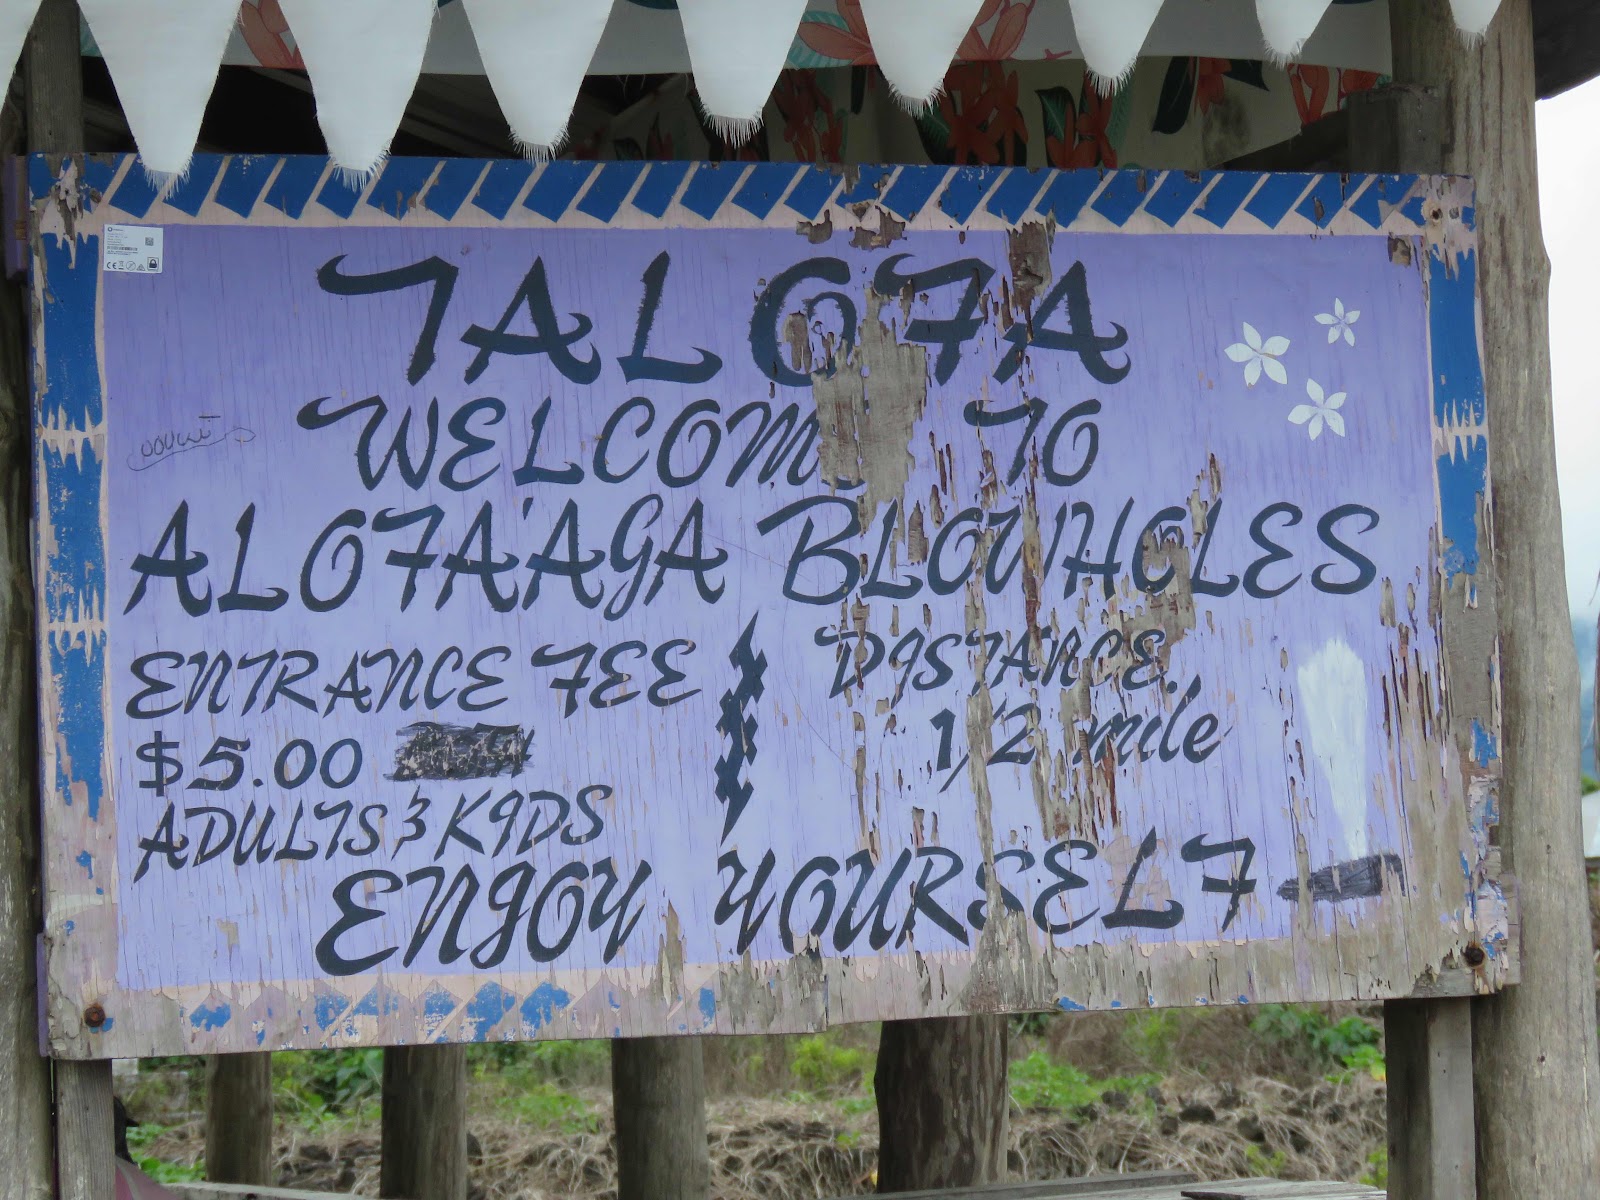 TALOFA
WELCOME TO
ALOFA'AGA BLOWHOLES
ENTRANCE FEE
$5.00
ADULTS & KIDS
DISTANCE.
1/2 mile
ENJOY YOURSELF